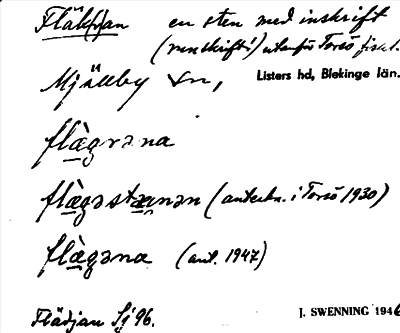 Fläk(j)an en sten med inskrift
(runskrift?) utanför Torsö fiskel.
Mjällby sn, Listers hd, Blekinge län.
flàgrəna
flàgəstæ̀nən (anteckn. i Torsö 1930)
flàgəna (ant. 1947)
Flädjan Sj 96. J. SWENNING 1946